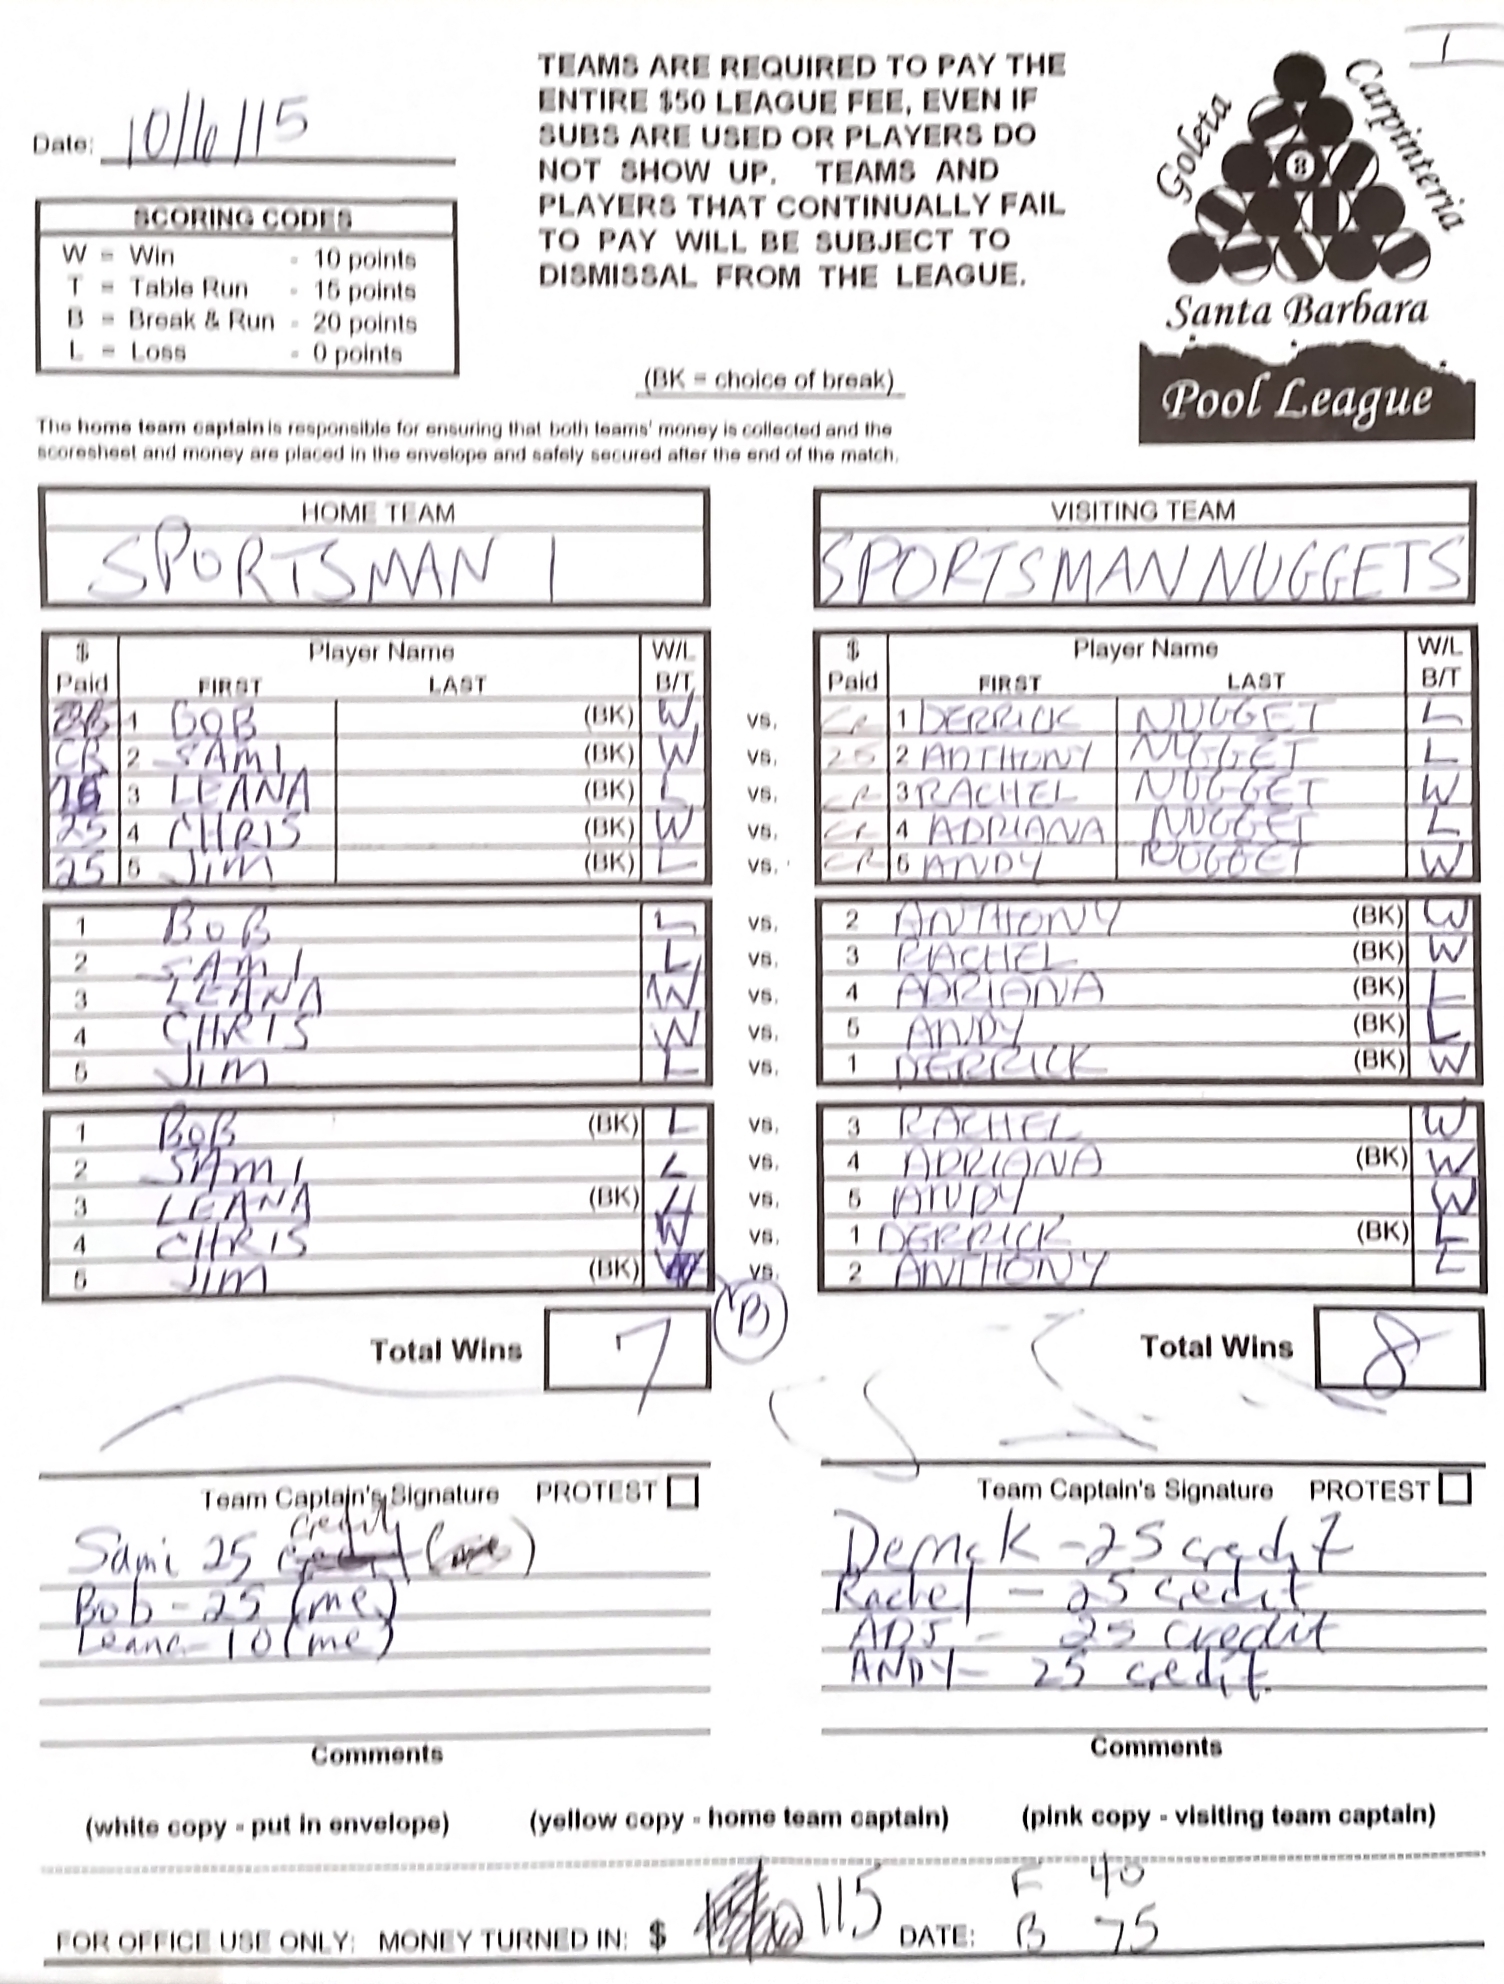 1
TEAMS ARE REQUIRED TO PAY THE
ENTIRE $50 LEAGUE FEE, EVEN IF
SUBS ARE USED OR PLAYERS DO
NOT SHOW UP. TEAMS AND
PLAYERS THAT CONTINUALLY FAIL
TO PAY WILL BE SUBJECT TO
DISMISSAL FROM THE LEAGUE.
Goleta
Carpinteria
8
Santa Barbara
Pool League
Date: 10/6/15
SCORING CODES
W = Win - 10 points
T = Table Run - 15 points
B = Break & Run - 20 points
L = Loss - 0 points
(BK = choice of break)
The home team captain is responsible for ensuring that both teams' money is collected and the
scoresheet and money are placed in the envelope and safely secured after the end of the match.
HOME TEAM VISITING TEAM
SPORTSMAN 1 SPORTSMAN NUGGETS
$ Player Name W/L $ Player Name W/L
Paid FIRST LAST B/T Paid FIRST LAST B/T
1 BOB (BK) W vs. CR 1 DERRICK NUGGET L
CR 2 SAMI (BK) W vs. 25 2 ANTHONY NUGGET L
3 LEANA (BK) L vs. CR 3 RACHEL NUGGET W
25 4 CHRIS (BK) W vs. CR 4 ADRIANA NUGGET L
25 5 JIM (BK) L vs. CR 5 ANDY NUGGET W
1 BOB L vs. 2 ANTHONY (BK) W
2 SAMI L vs. 3 RACHEL (BK) W
3 LEANA W vs. 4 ADRIANA (BK) L
4 CHRIS W vs. 5 ANDY (BK) L
5 JIM L vs. 1 DERRICK (BK) W
1 BOB (BK) L vs. 3 RACHEL W
2 SAMI L vs. 4 ADRIANA (BK) W
3 LEANA (BK) L vs. 5 ANDY W
4 CHRIS W vs. 1 DERRICK (BK) L
5 JIM (BK) W vs. 2 ANTHONY L
B
Total Wins 7 Total Wins 8
Team Captain's Signature PROTEST Team Captain's Signature PROTEST
credit
Sami 25
Bob - 25 (me)
Leana - 10 (me)
Derrick - 25 credit
Rachel - 25 credit
ADJ - 25 credit
ANDY - 25 credit
Comments Comments
(white copy - put in envelope) (yellow copy - home team captain) (pink copy - visiting team captain)
F 40
FOR OFFICE USE ONLY: MONEY TURNED IN: $ 115 DATE: B 75